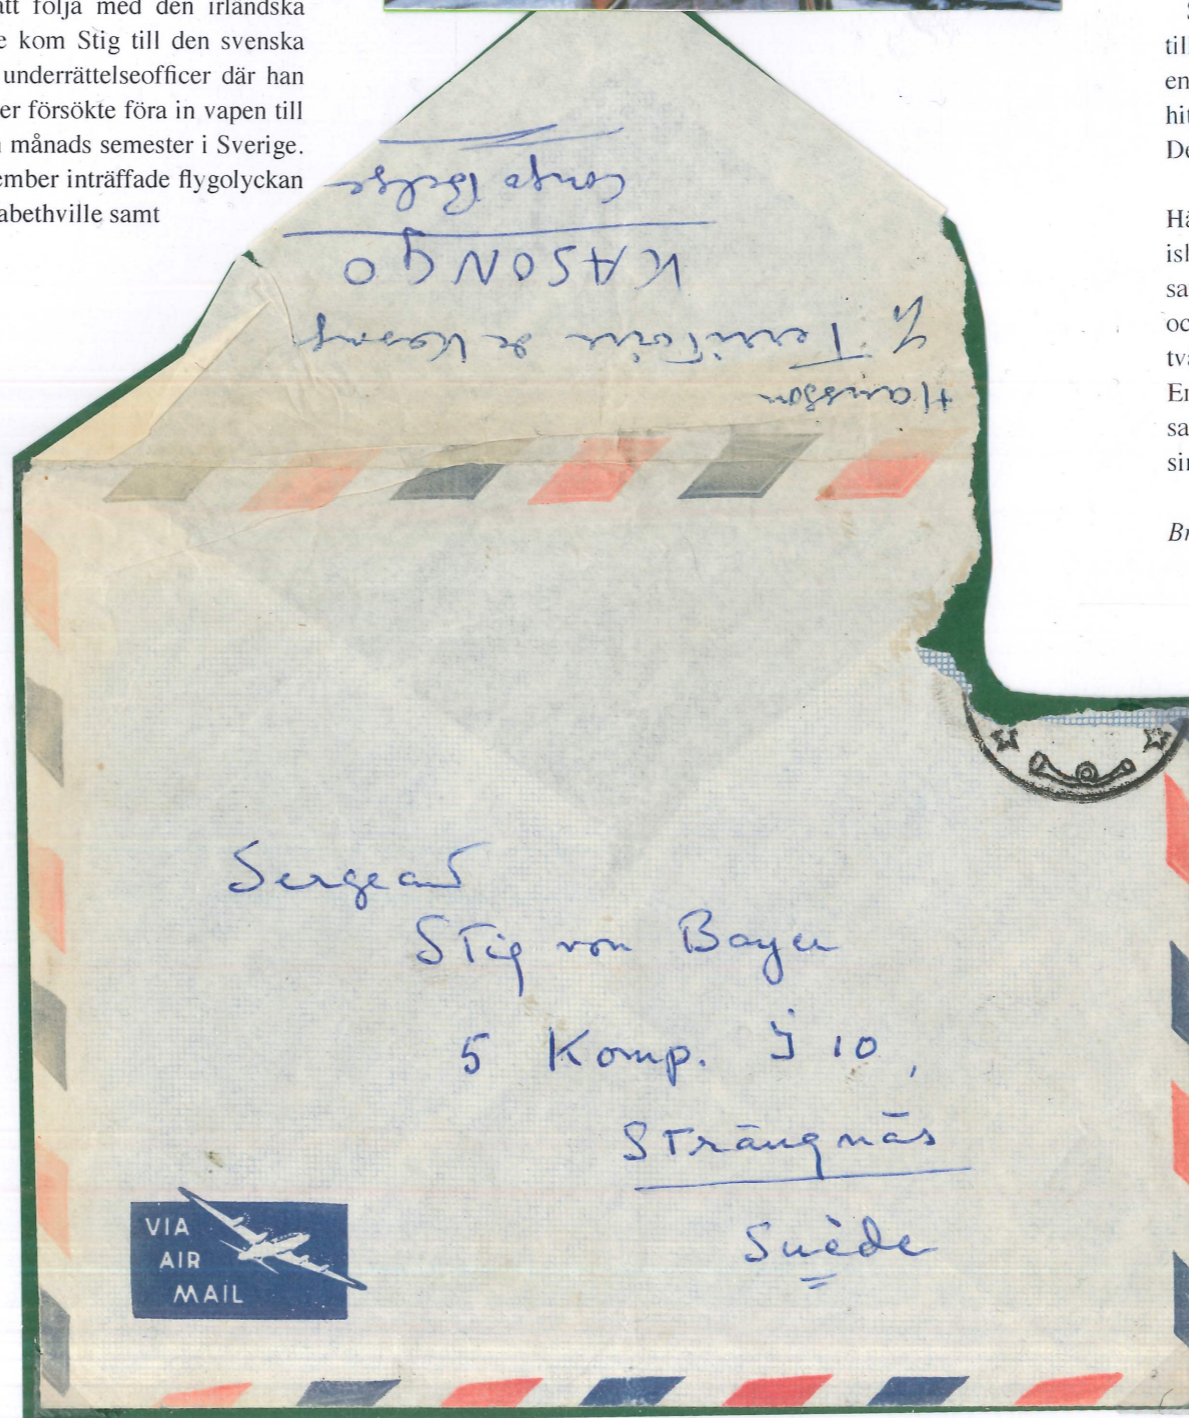 att följa med den irländska
e kom Stig till den svenska
underrättelseofficer där han
er försökte föra in vapen till
månads semester i Sverige.
ember inträffade flygolyckan
abethville samt
S
til
en
hit
De
Hä
isl
sa
oc
tva
En
sa
sin
Br
Hansson
Territoire de Kasongo
KASONGO
Congo Belge
Sergeant
Stig von Bayer
5 Komp. I 10,
Strängnäs
Suède
VIA
AIR
MAIL